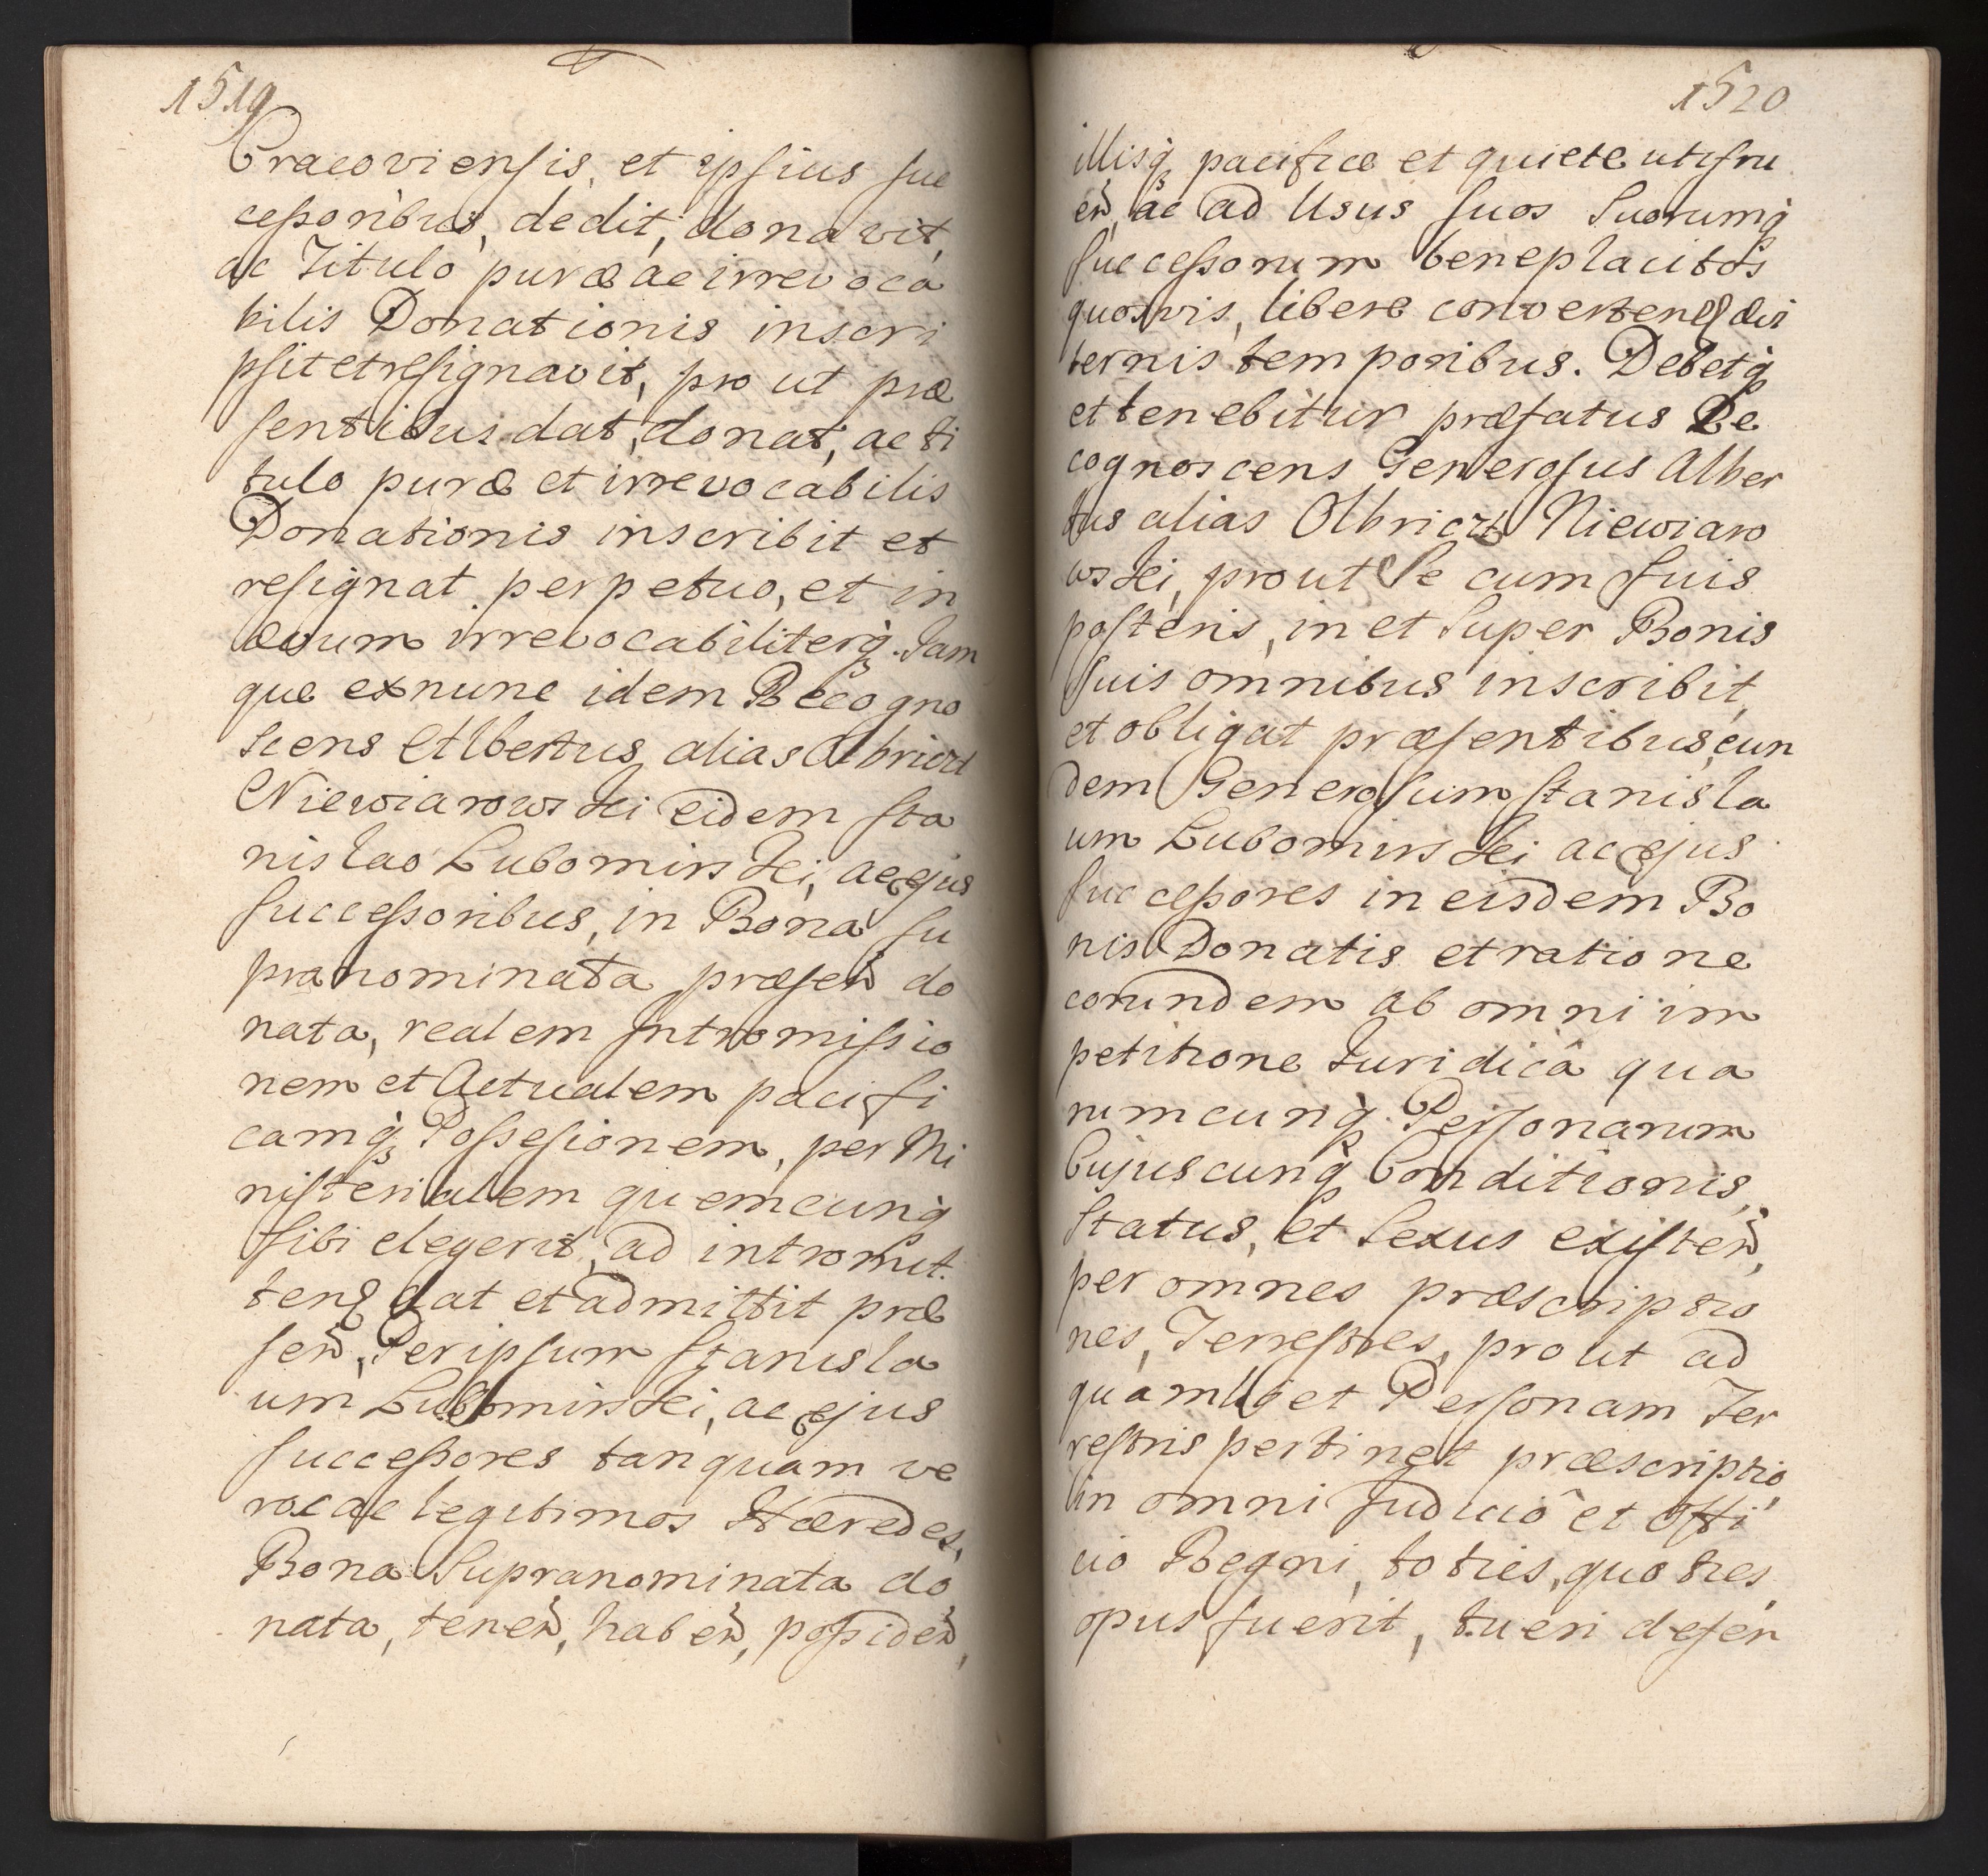 1519
Cracoviensis, et ipsius suc
cessoribus, dedit, donavit,
ac Titulo puræ ac irrevoca
bilis Donationis inscri
psit et resignavit, pro ut præ
sentibus dat, donat, ac ti
tulo puræ et irrevocabilis
Donationis inscribit et
resignat perpetuo, et in
ævum irrevocabiliterq́. Jam
que exnunc idem Recogno
scens Albertus alias Olbricht
Niewiarowski eidem Sta
nislao Lubomirski, ac ejus
successoribus, in Bona su
pranominata præsen̄ do
nata, realem Intromissio
nem et Actualem pacifi
camq́ Possesionem, per Mi
nisterialem quemcunq́
sibi elegerit, ad intromit.
tenđ dat et admittit præ
sen̄, Per ipsum Stanisla
um Lubomirski, ac ejus
successores tanquam ve
ros ac legitimos Hæredes,
Bona Supranominata do
nata, tenen̄, haben̄, possiden̄,
1520
illisq́ pacifice et quiete utifru
en̄, ac ad Usus suos Suorumq́
successorum beneplacitos
quosvis, libere convertenđ ævi
ternis temporibus. Debetq́
et tenebitur præfatus Re
cognoscens Generosus Alber
tus alias Olbricht Niewiaro
wski, prout Se cum suis
posteris, in et Super Bonis
suis omnibus inscribit,
et obligat præsentibus, eun
dem Generosum Stanisla
um Lubomirski ac ejus
successores in eisdem Bo
nis Donatis et ratione
eorundem ab omni im
petitione Juridicâ qua
rumcunq́ Personarum
Cujuscunq́ Conditionis,
Status, et Sexus existen̄,
per omnes præscriptio
nes, Terrestres, pro ut ad
quamlibet Personam Ter
restris pertinet præscriptio
in omni Judicio et Offi
cio Regni, toties, quo ties
opus fuerit, tueri defen